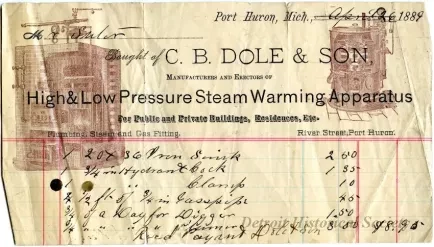 Port Huron, Mich., April 26 1889
M
Bought of C. B. DOLE & SON,
MANUFACTURERS AND ERECTORS OF
High & Low Pressure Steam Warming Apparatus
for Public and Private Buildings, Residences, Etc.
Plumbing, Steam and Gas Fitting. River Street, Port Huron.
1 20 x 36 Iron Sink 2 50
1 3/4 in Hydrant Cock 1 35
1 " Clamp 10
2 1/2 ft of 3/4 in Gas pipe 25
of a Day for Digger 1.50
" " "
Rec'd Payment Dole & Son
Detroit Historical Society